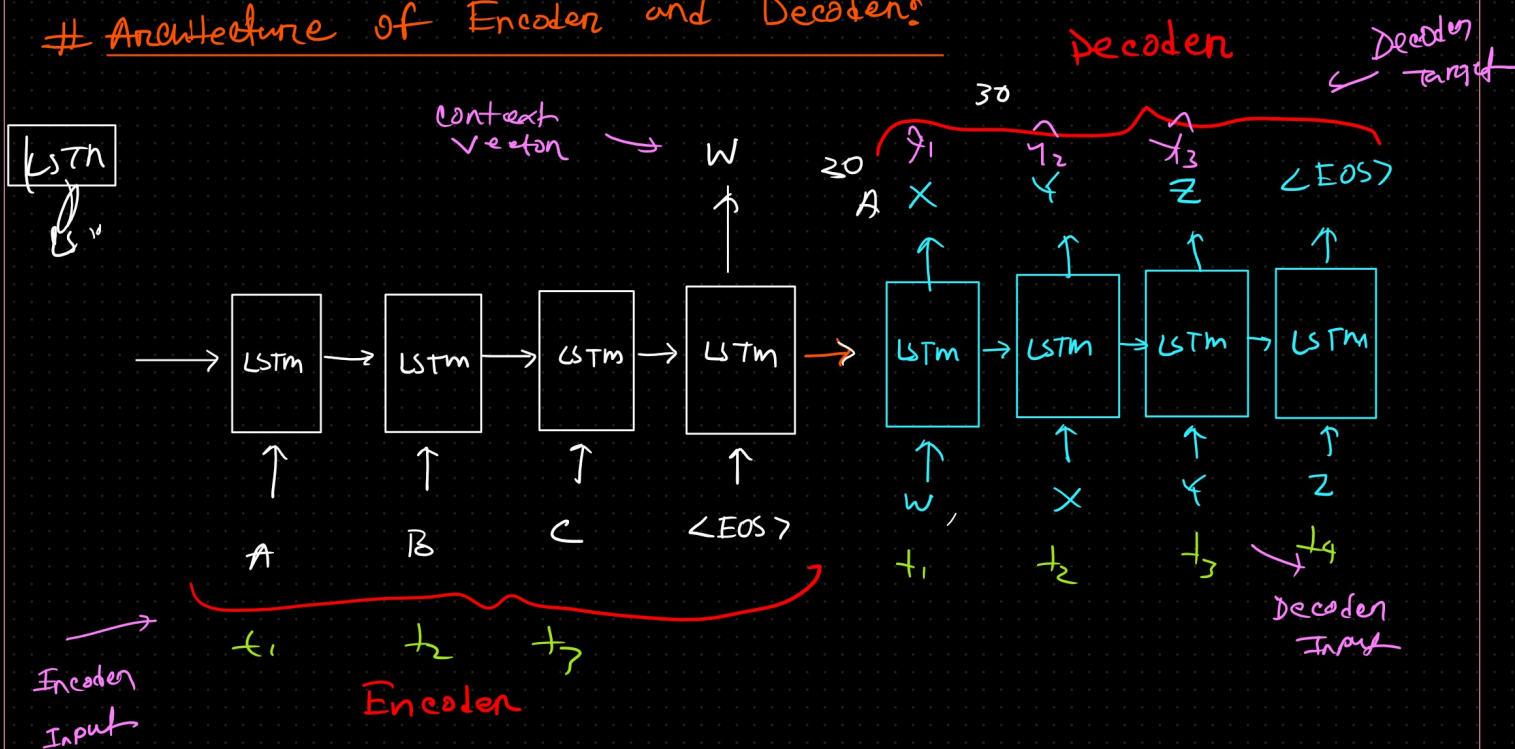 # Architecture of Encoder and Decoder:
Decoder
Decoder
Target
30
Context
Vector
W
30
A
ŷ1
ŷ2
ŷ3
X
Y
Z
<EOS>
LSTM
LSTM
LSTM
LSTM
LSTM
LSTM
LSTM
LSTM
LSTM
A
B
C
<EOS>
W
X
Y
Z
t1
t2
t3
t4
t1
t2
t3
Decoder
Input
Encoder
Input
Encoder